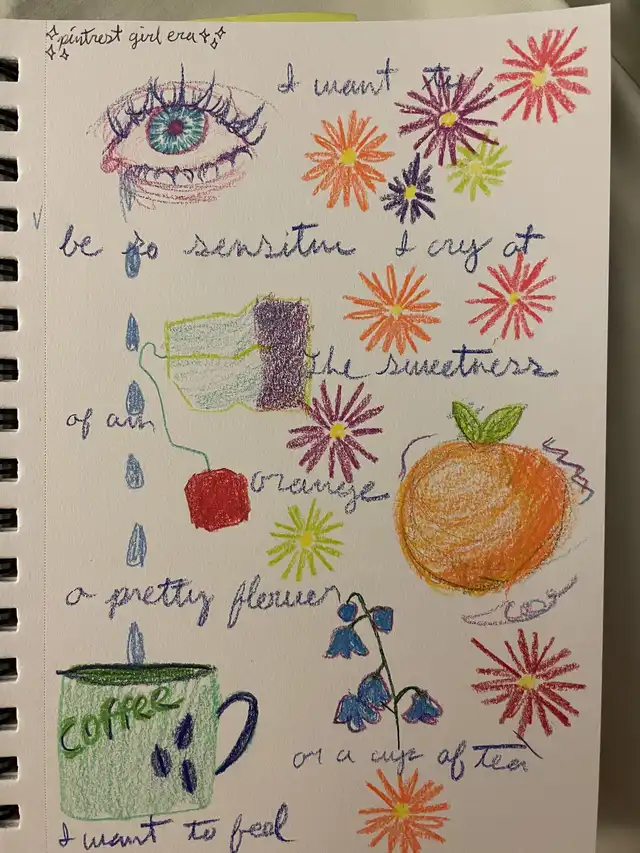 ✧pintrest girl era✧✧
✧✧
I want to
be so sensitive I cry at
the sweetness
of an
orange
a pretty flower
coffee
or a cup of tea
I want to feel